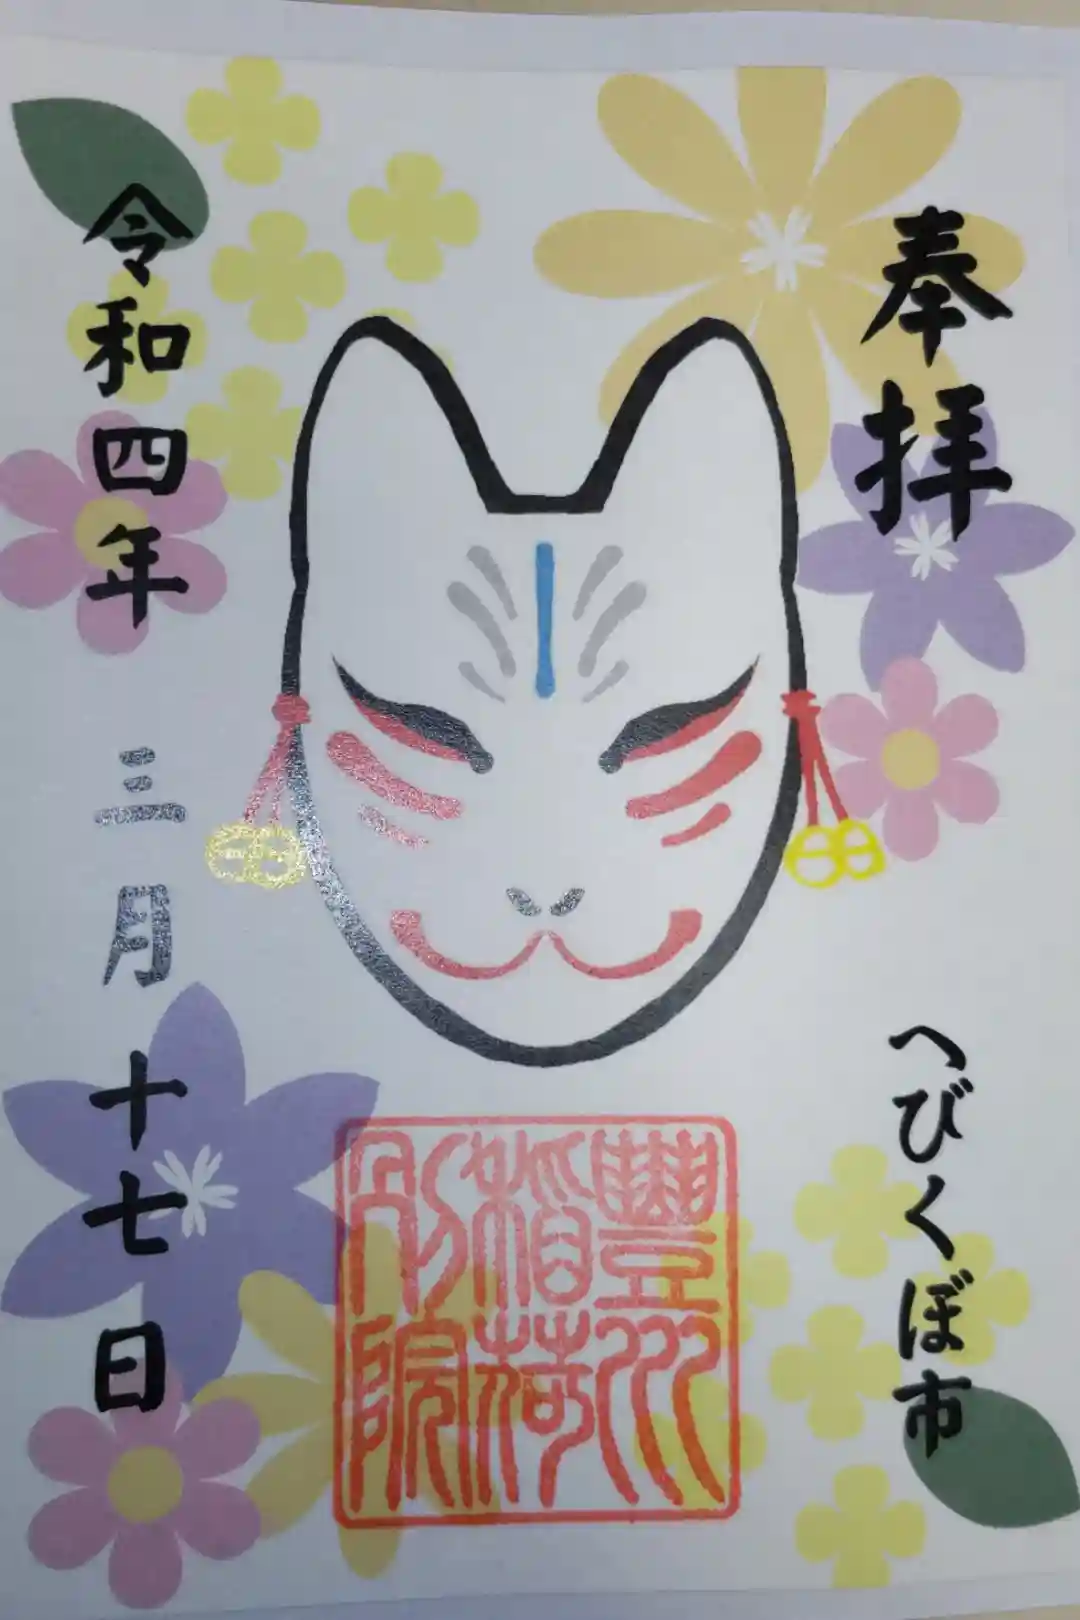 奉拝
へびくぼ市
豐川
稲荷
別院
令和四年三月十七日